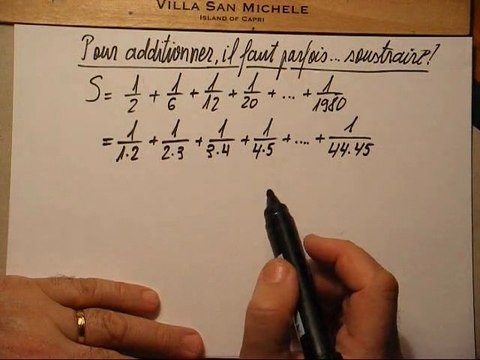 VILLA SAN MICHELE
ISLAND OF CAPRI
Pour additionner, il faut parfois... soustraire?!
S = 1/2 + 1/6 + 1/12 + 1/20 + ... + 1/1980
= 1/1.2 + 1/2.3 + 1/3.4 + 1/4.5 + .... + 1/44.45